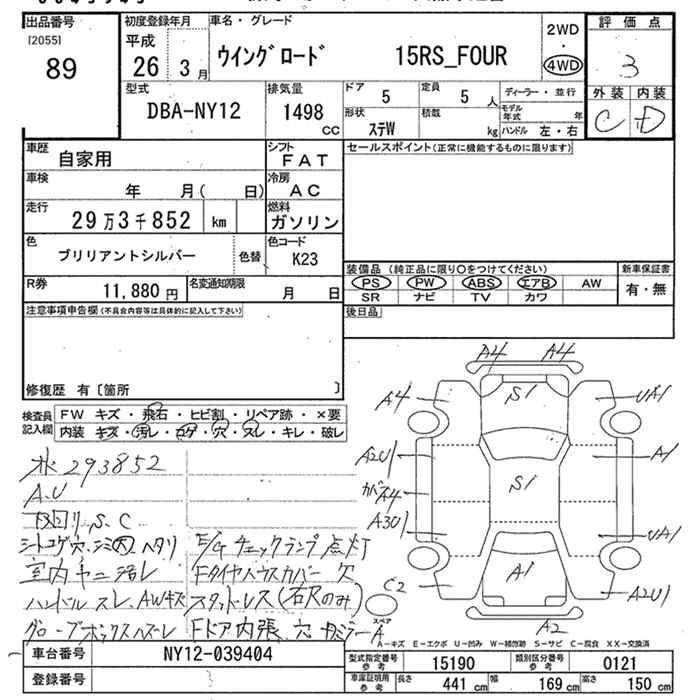 出品番号
[2055]
89
初度登録年月
平成
26 3月
車名・グレード
ウイングロード
15RS_FOUR
2WD
・
4WD
評価点
3
外装 内装
C D
型式
DBA-NY12
排気量
1498
CC
ドア
5
定員
5人
形状
ステW
積載
kg
ディーラー・並行
モデル年式 年
ハンドル 左・右
車歴
自家用
シフト
FAT
車検
年 月( 日)
冷房
AC
走行
29万3千852 km
燃料
ガソリン
色
ブリリアントシルバー
色替
色コード
K23
R券
11,880円
名変通知期限
月 日
セールスポイント(正常に機能するものに限ります)
装備品(純正品に限り○をつけてください)
PS PW ABS エアB AW
SR ナビ TV カワ
新車保証書
有・無
後日品
注意事項申告欄(不具合内容等は具体的に記入して下さい)
修復歴 有〔箇所 〕
検査員記入欄
FW キズ・飛石・ヒビ割・リペア跡・×要
内装 キズ・汚レ・コゲ・穴・スレ・キレ・破レ
293852
A.U
下回り S.C
シートコゲ穴.シミ大.ヘタリ
室内ヤニ汚レ
ハンドルスレ.AWキズ
グローブボックスハズレ
E/Gチェックランプ点灯
Fタイヤハウスカバー欠
スタットレス(右尺のみ)
Fドア内張.穴
A4 A4
S1
A4
UA1
A2U1
A1
カバスA4
S1
A3U1
UA1
A1
A2U1
C2
スペア
A2
A－キズ E－エクボ U－凹み W－補修跡 S－サビ C－腐食 XX－交換済
車台番号
NY12-039404
登録番号
型式指定番号 参考
15190
類別区分番号 参考
0121
車庫証明用 参考
長さ 441cm
幅 169cm
高さ 150cm